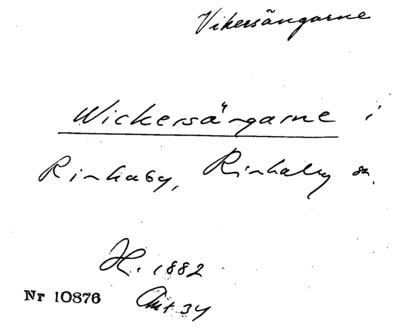 Vikersängarne
Wickersängarne i
Rinkaby, Rinkaby sn.
H. 1882
Nr 10876 Akt 34